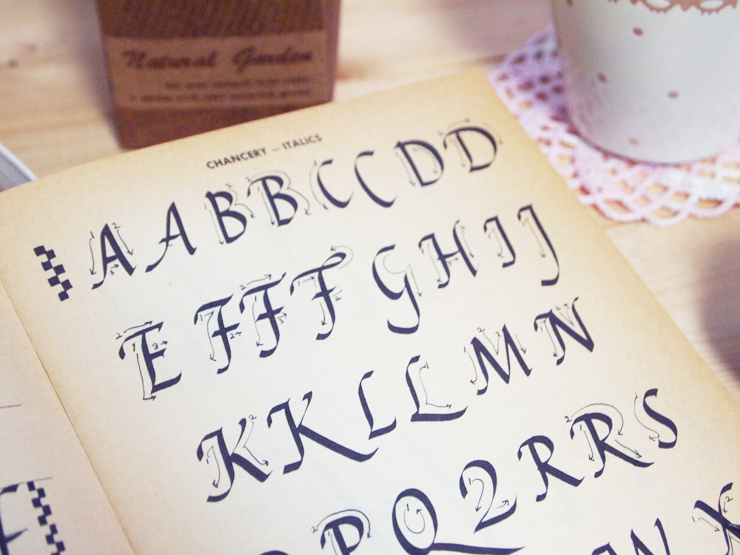 Natural Garden
CHANCERY — ITALICS
A A B B C C D D
E F F F G H I J
K K L L M N
P Q 2 R R S
W X